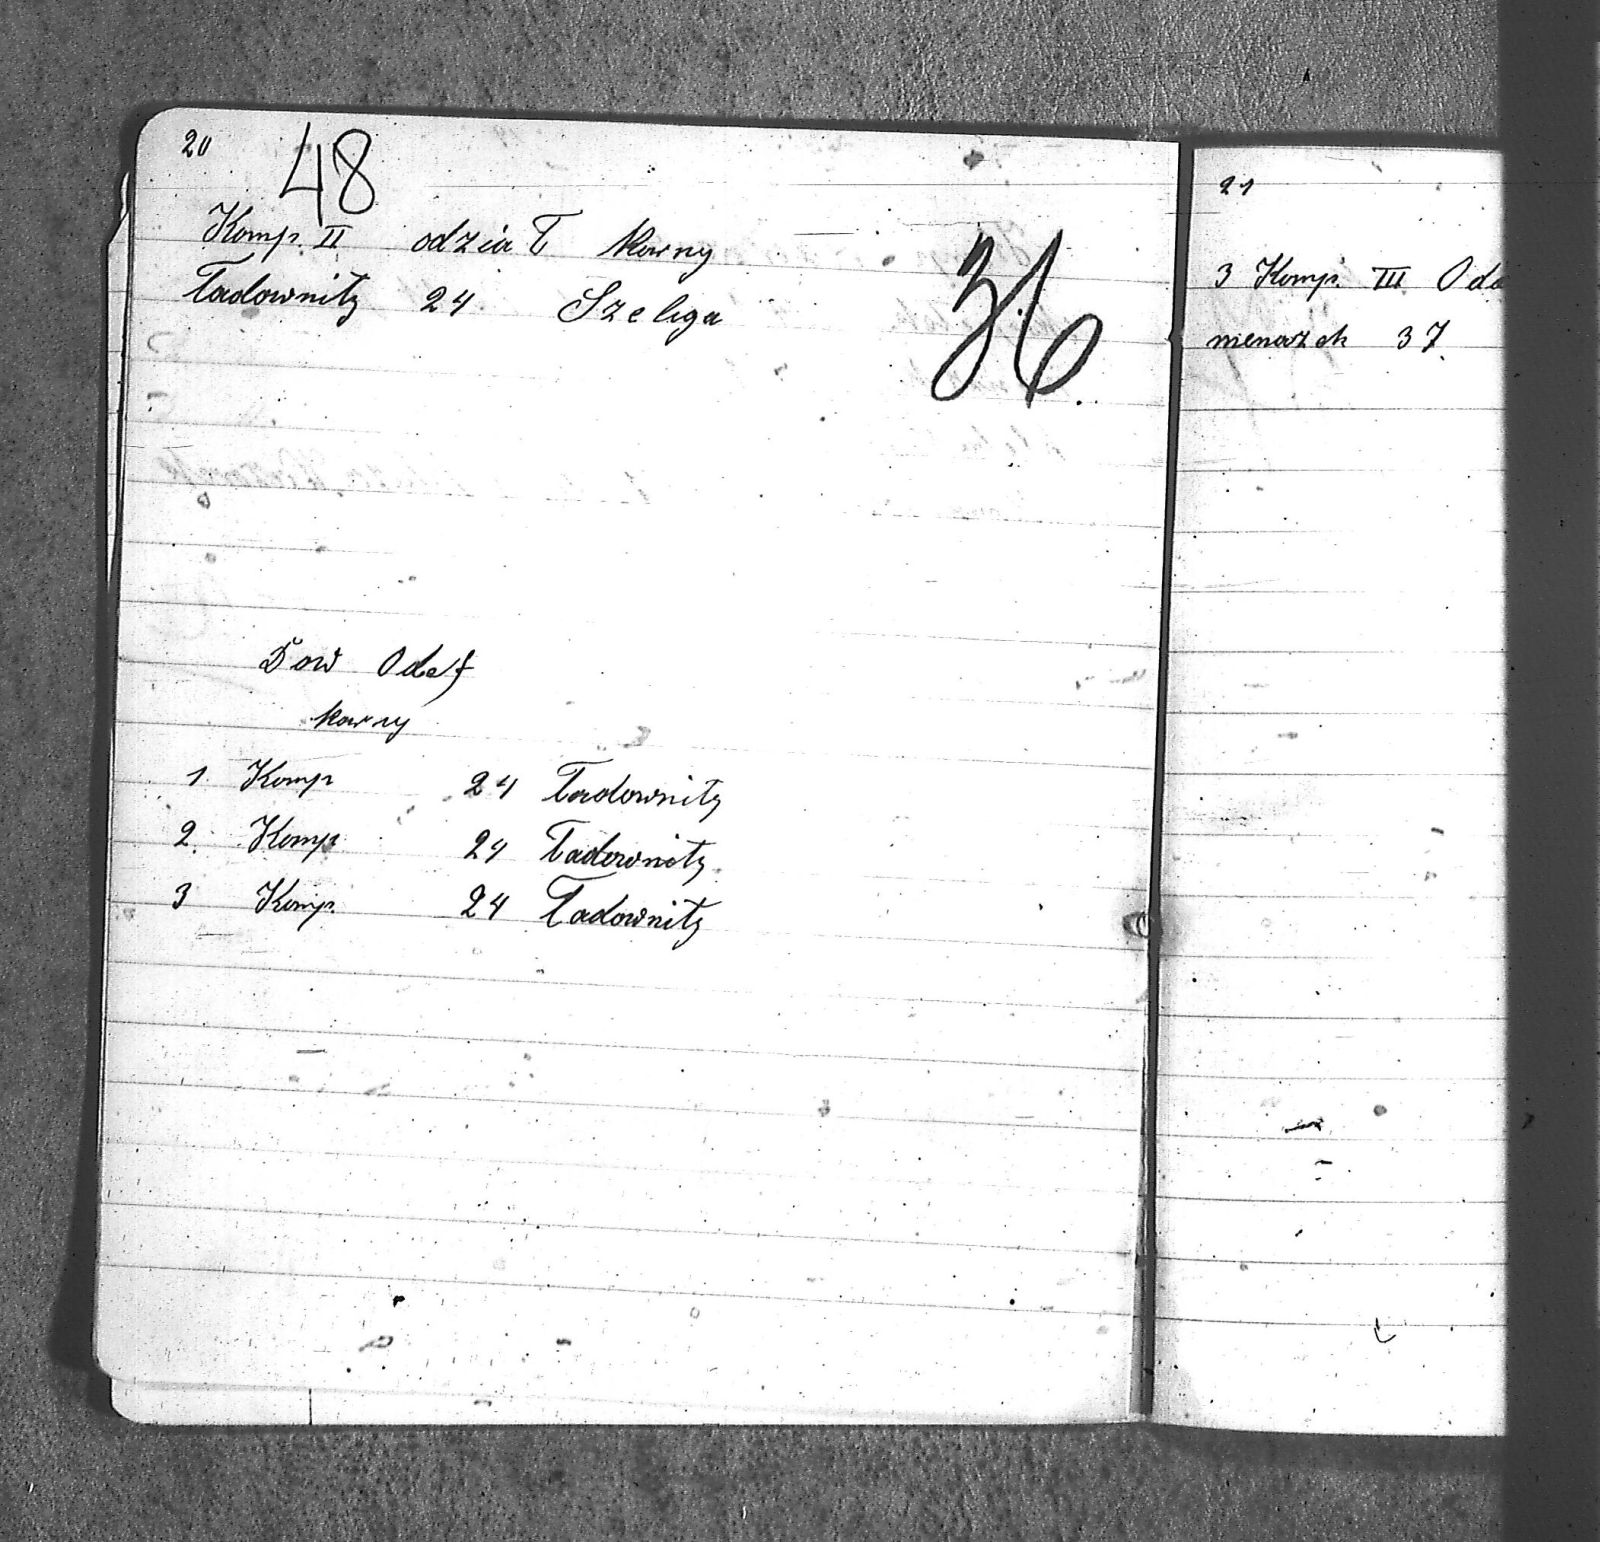 20
48
Komp. II odział karny
Ładownitz 24 Szeliga
36
Dow Odcf
karny
1 Komp 24 Ładownitz
2. Komp 24 Ładownitz
3 Komp. 24 Ładownitz
21
3 Komp. III Odd
menażek 37